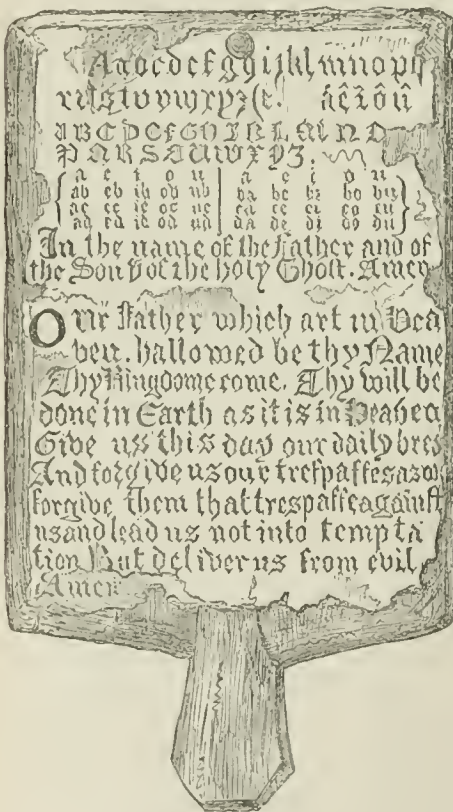 Aabcdefghijklmnopq
rſstuvwxyz&e. âêîôû
ABCDEFGHIKLMNO
PQRSTUVWXYZ.
a e i o u a e i o u
ab eb ib ob ub ba be bi bo bu
ac ec ic oc uc ca ce ci co cu
ad ed id od ud da de di do du
In the name of the Father and of
the Son & of the holy Ghoſt. Amen
Our Father which art in Hea
ven, hallowed be thy Name
Thy Kingdome come, Thy will be
done in Earth as it is in Heaven
Give us this day our daily bre
And forgive us our treſpaſſes as we
forgive them that trespaſſe againſt
us and lead us not into tempta
tion But deliver us from evil
Amen